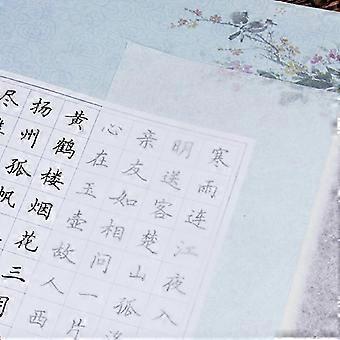 寒雨连江夜入
明送客楚山孤
亲友如相问一片
心在玉壶故人西
黄鹤楼烟花三月
扬州孤帆
尽